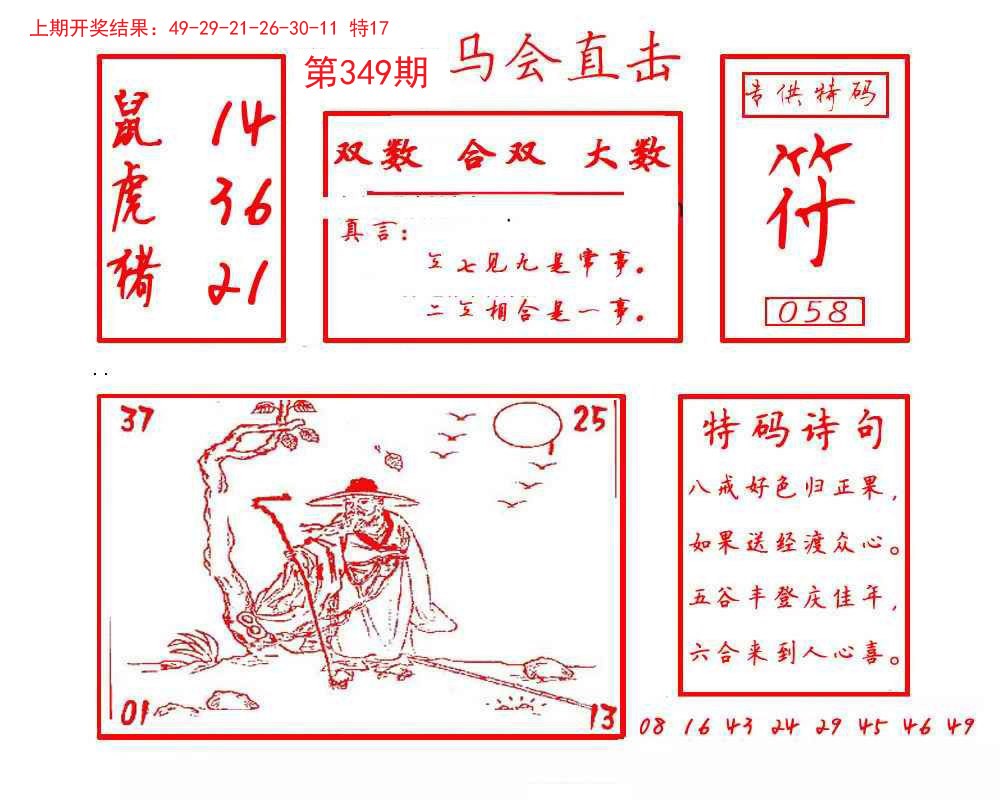 上期开奖结果：49-29-21-26-30-11 特17
第349期 马会直击
鼠 14
虎 36
猪 21
双数 合双 大数
真言：
五七见九是常事。
二五相合是一事。
专供特码
符
058
37
25
01
13
特码诗句
八戒好色归正果，
如果送经渡众心。
五谷丰登庆佳年，
六合来到人心喜。
08 16 43 24 29 45 46 49